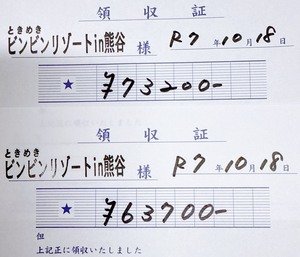 領収証
ときめき
ピンピンリゾートin熊谷 様 R7年10月18日
★ ¥73200-
領収証
ときめき
ピンピンリゾートin熊谷 様 R7年10月18日
★ ¥63700-
但
上記正に領収いたしました